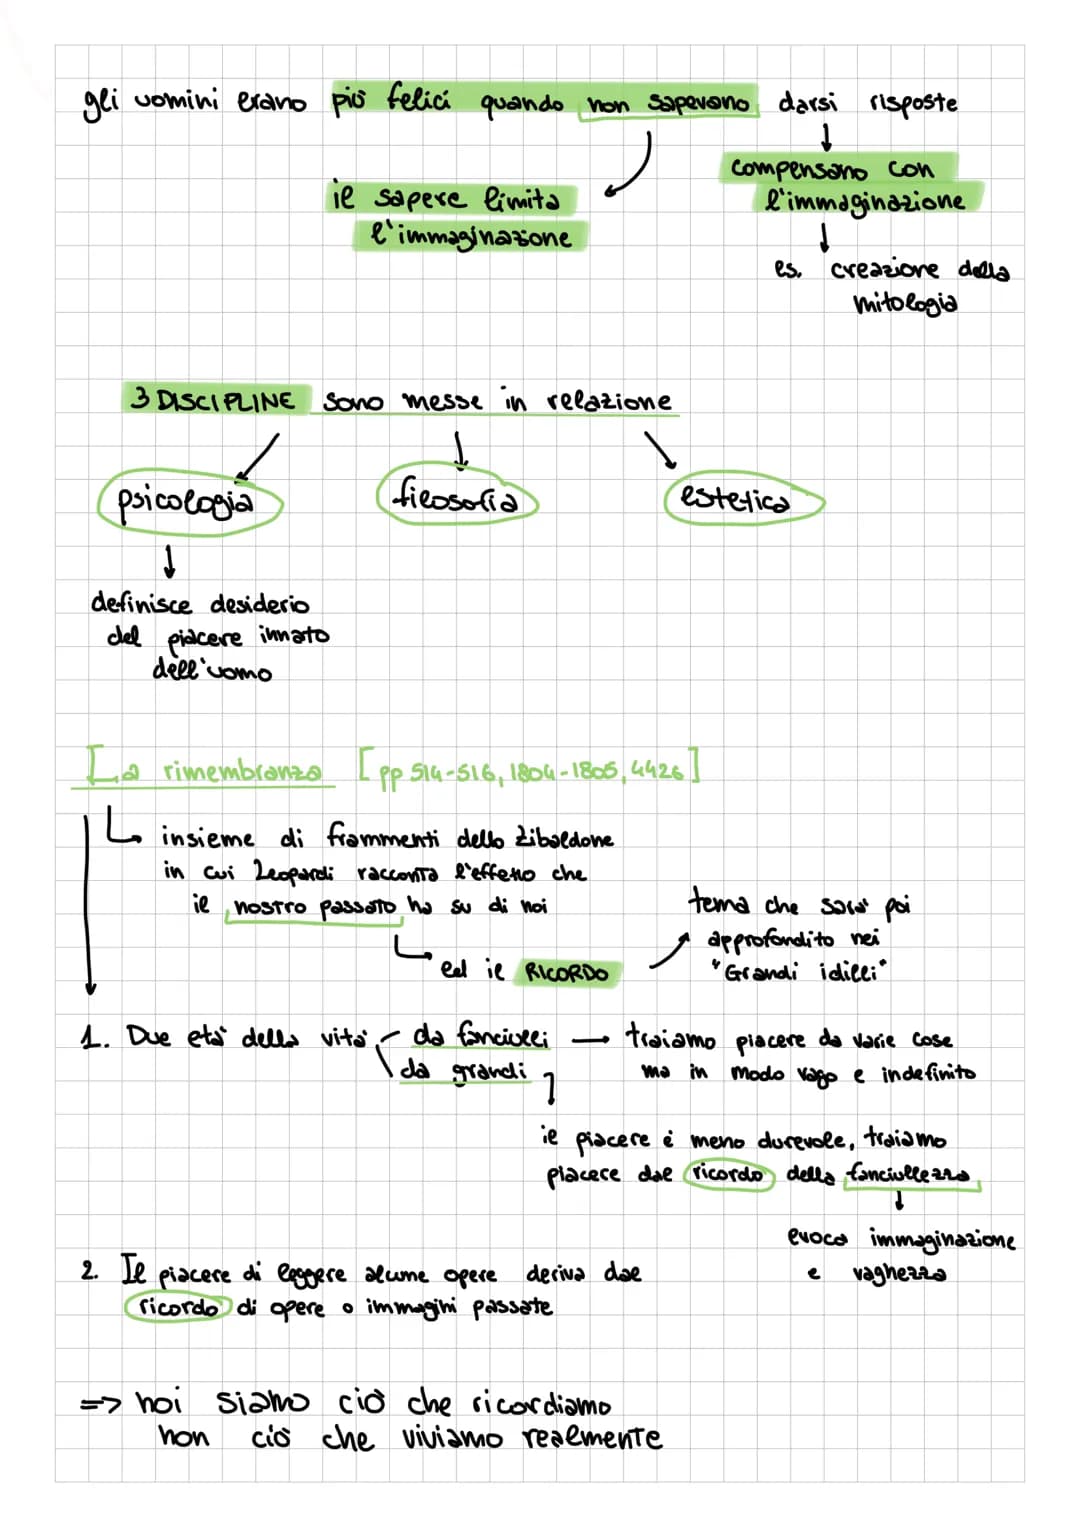 gli uomini erano più felici quando non sapevano darsi risposte
compensano con
l'immaginazione
il sapere limita
l'immaginazione
es. creazione della
mitologia
3 DISCIPLINE sono messe in relazione
psicologia filosofia estetica
definisce desiderio
del piacere innato
dell'uomo
La rimembranza [pp 514-516, 1804-1805, 4426]
insieme di frammenti dello Zibaldone
in cui Leopardi racconta l'effetto che
il nostro passato ha su di noi
ed il RICORDO
tema che sarà poi
approfondito nei
"Grandi idilli"
1. Due età della vita da fanciulli → traiamo piacere da varie cose
da grandi ma in modo vago e indefinito
il piacere è meno durevole, traiamo
piacere dal ricordo della fanciullezza
evoca immaginazione
e vaghezza
2. Il piacere di leggere alcune opere deriva dal
ricordo di opere o immagini passate
=> noi siamo ciò che ricordiamo
non ciò che viviamo realmente